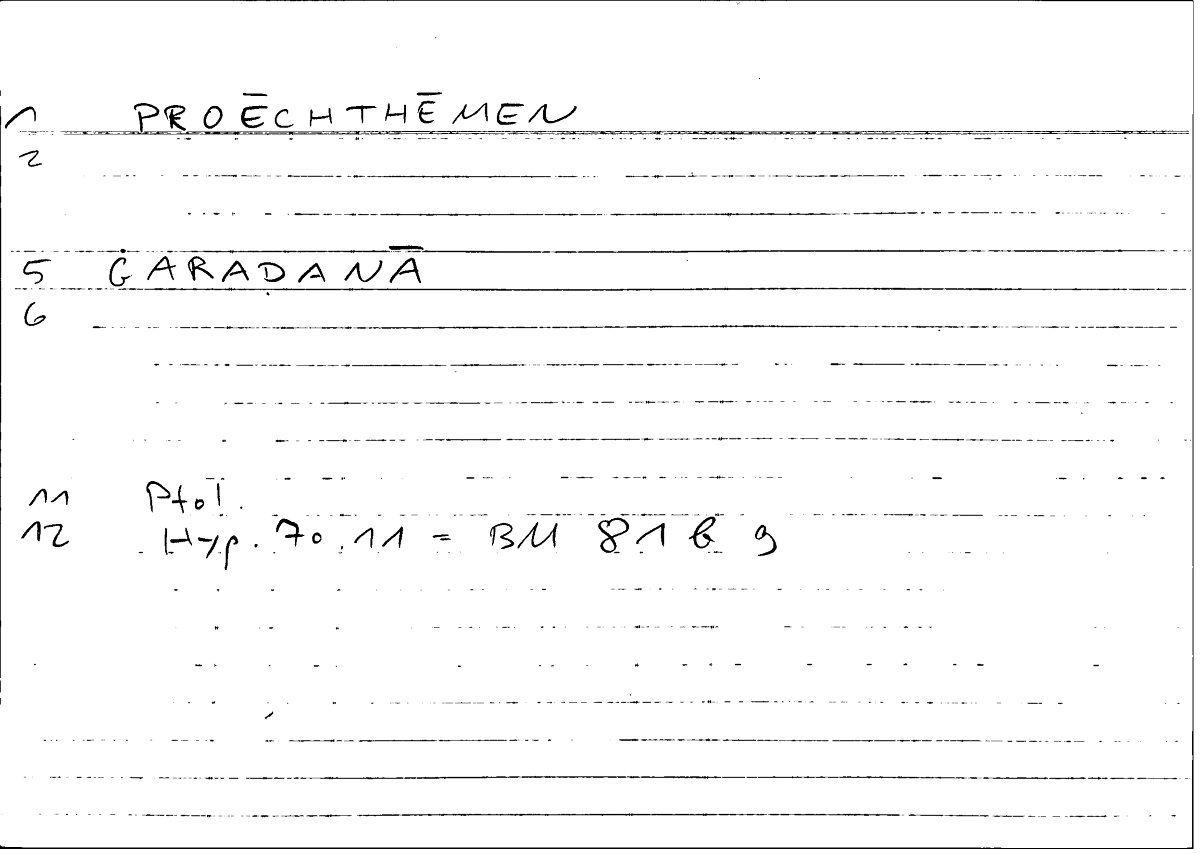 1 PROĒCHTHĒMEN
2
5 ĠARADANĀ
6
11 Ptol.
12 Hyp. 70.11 = BM 81 b 9